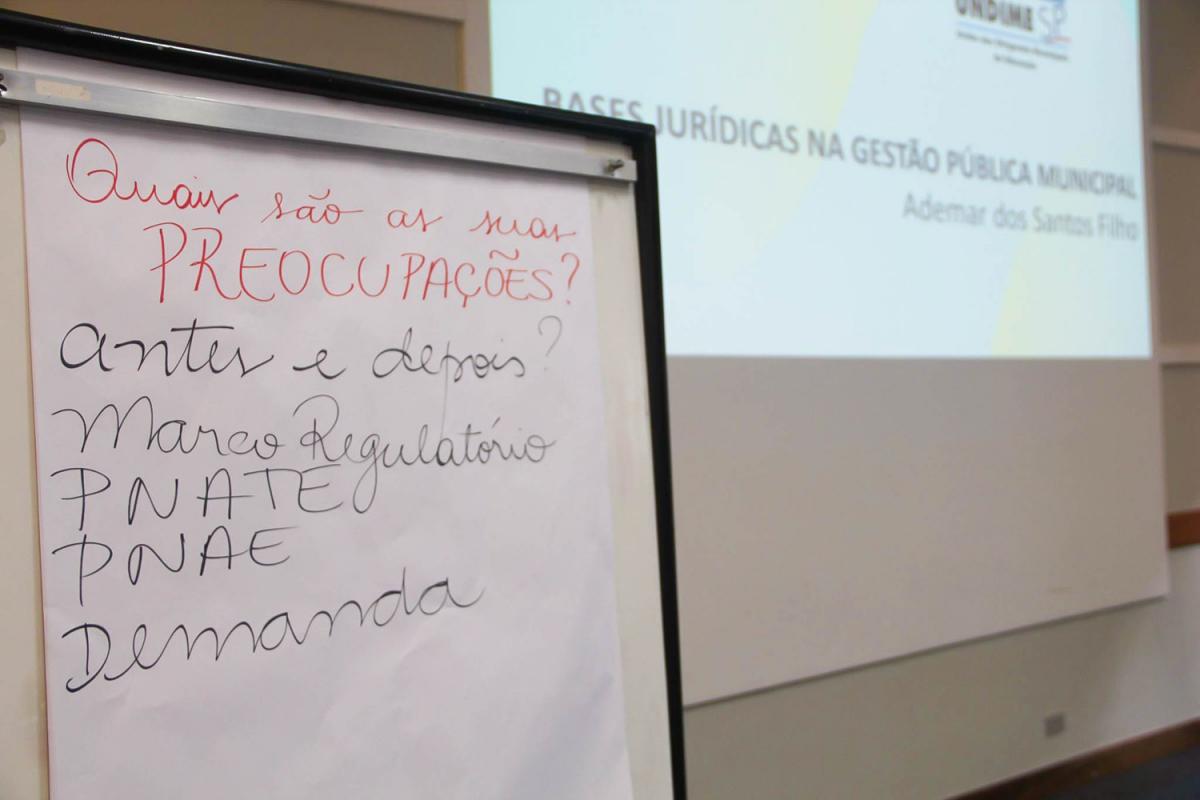 Quais são as suas
PREOCUPAÇÕES?
antes e depois?
Marco Regulatório
PNATE
PNAE
Demanda
UNDIME SP
BASES JURÍDICAS NA GESTÃO PÚBLICA MUNICIPAL
Ademar dos Santos Filho